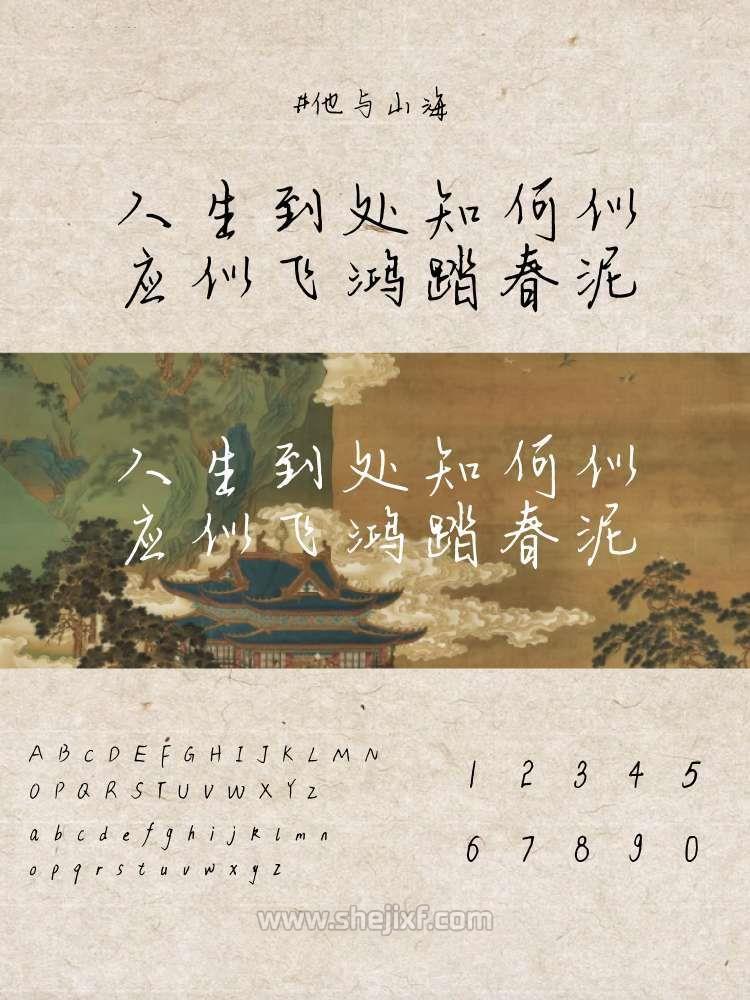 #他与山海
人生到处知何似
应似飞鸿踏春泥
人生到处知何似
应似飞鸿踏春泥
A B C D E F G H I J K L M N
O P Q R S T U V W X Y Z
a b c d e f g h i j k l m n
o p q r s t u v w x y z
1 2 3 4 5
6 7 8 9 0
www.shejixf.com